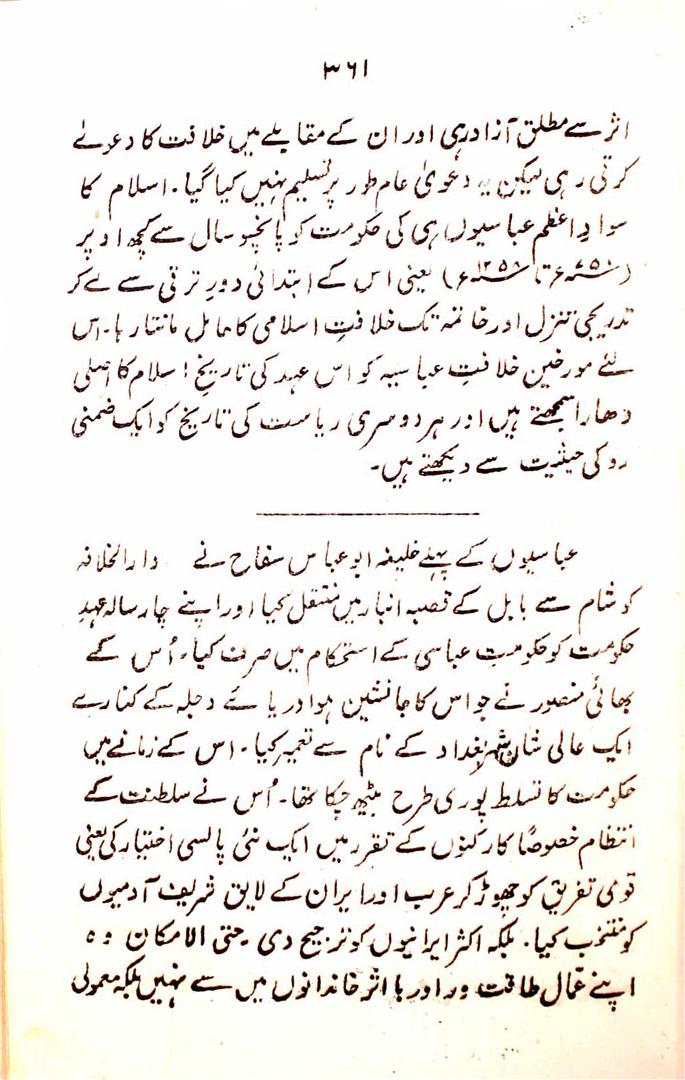 ۳۶۱
اثر سے مطلق آزاد رہی اور ان کے مقابلے میں خلافت کا دعوےٰ
کرتی رہی لیکن یہ دعویٰ عام طور پر تسلیم نہیں کیا گیا۔ اسلام کا
سوادِ اعظم عباسیوں ہی کی حکومت کو پانچسو سال سے کچھ اوپر
(۷۵۰ء تا ۱۲۵۸ء) یعنی اس کے ابتدائی دورِ ترقی سے لے کر
تدریجی تنزل اور خاتمہ تک خلافتِ اسلامی کا حامل مانتا رہا۔ اس
لئے مورخین خلافتِ عباسیہ کو اس عہد کی تاریخِ اسلام کا اصلی
دھارا سمجھتے ہیں اور ہر دوسری ریاست کی تاریخ کو ایک ضمنی
رو کی حیثیت سے دیکھتے ہیں۔
عباسیوں کے پہلے خلیفہ ابو عباس سفاح نے دارالخلافہ
کو شام سے بابل کے قصبہ انبار میں منتقل کیا اور اپنے چار سالہ عہدِ
حکومت کو حکومتِ عباسی کے استحکام میں صرف کیا۔ اُس کے
بھائی منصور نے جو اس کا جانشین ہوا دریائے دجلہ کے کنارے
ایک عالی شان شہر بغداد کے نام سے تعمیر کیا۔ اس کے زمانے میں
حکومت کا تسلط پوری طرح بیٹھ چکا تھا۔ اُس نے سلطنت کے
انتظام خصوصاً کارکنوں کے تقرر میں ایک نئی پالسی اختیار کی یعنی
قومی تفریق کو چھوڑ کر عرب اور ایران کے لایق شریف آدمیوں
کو منتخب کیا۔ بلکہ اکثر ایرانیوں کو ترجیح دی۔ حتی الامکان وہ
اپنے عمّال طاقت ور اور با اثر خاندانوں میں سے نہیں بلکہ معمولی